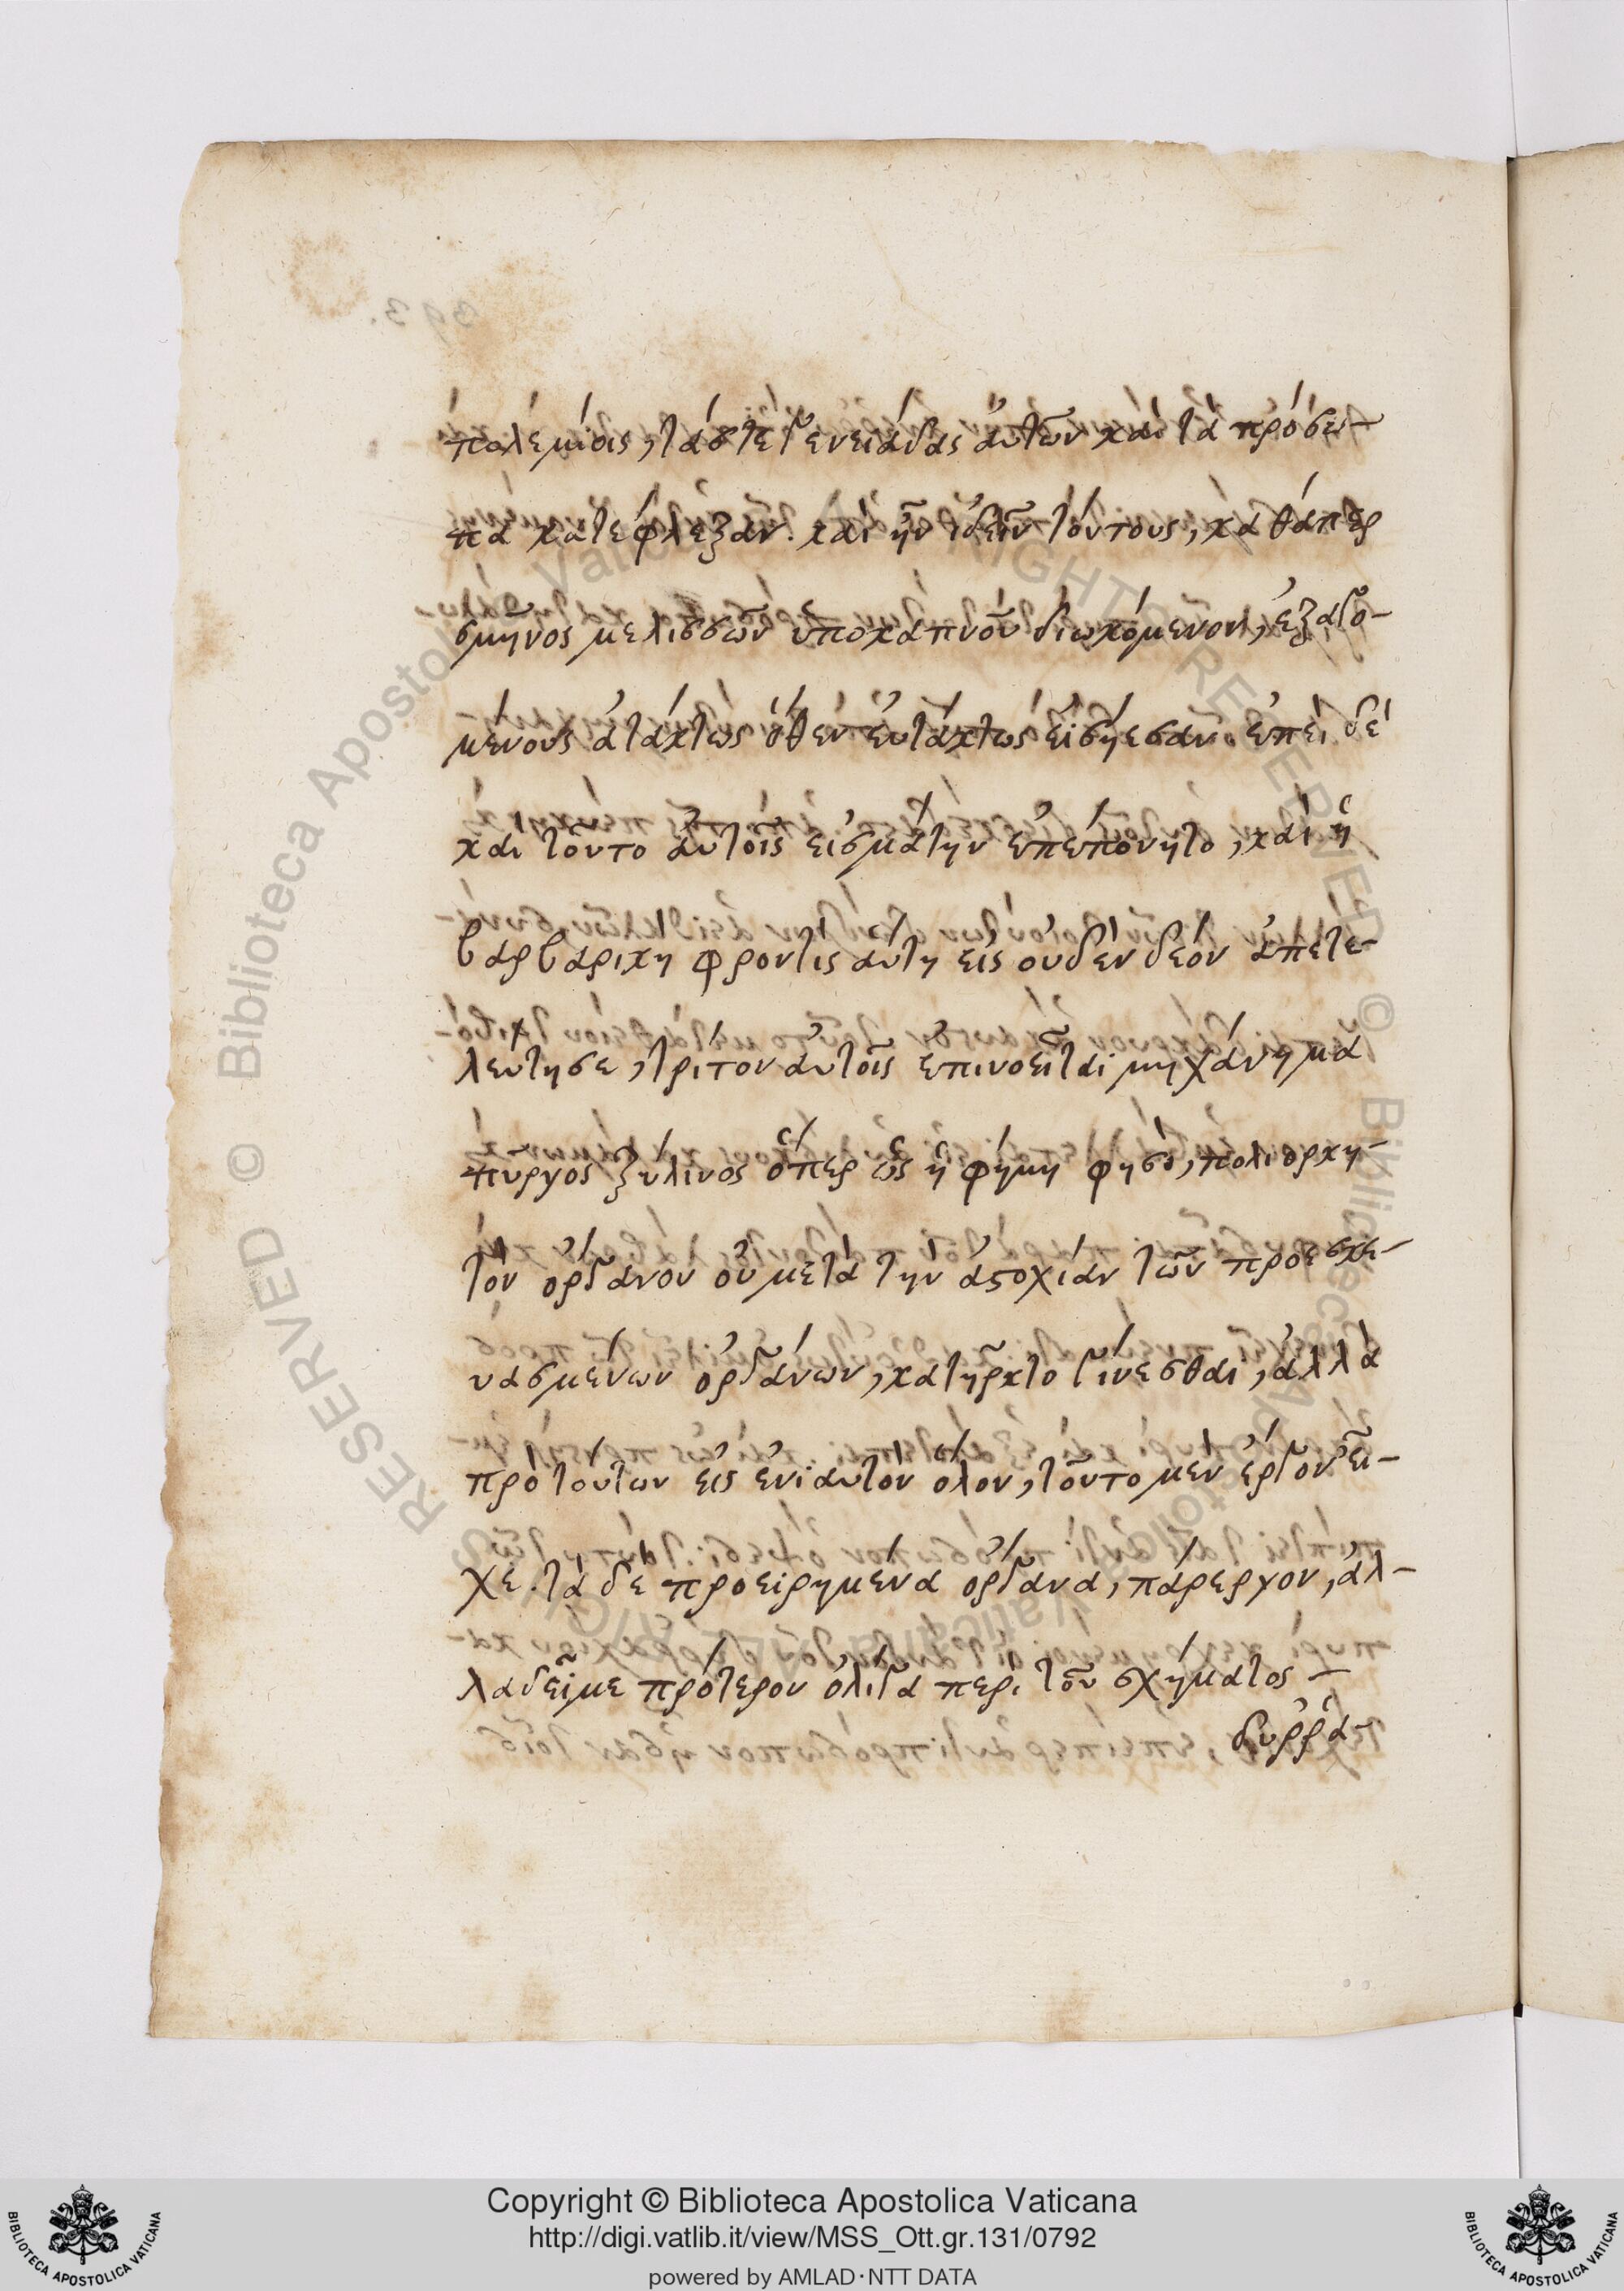 πολεμίοις, τάς τε γενειάδας αὐτῶν καὶ τὰ πρόσω-
πα κατέφλεξαν. καὶ ἦν ἰδεῖν τούτους, καθάπερ
σμῆνος μελισσῶν ὑποκαπνοῦ διωκόμενον, ἐξαγο-
μένους ἀτάκτως ὅθεν εὐτάκτως εἰσῄεσαν. ἐπεὶ δὲ
καὶ τοῦτο αὐτοῖς εἰσμάτην ἐπεπόνητο, καὶ ἡ
βαρβαρικὴ φροντὶς αὐτὴ εἰς οὐδὲν δέον ἀπετε-
λεύτησε, τρίτον αὐτοῖς ἐπινοεῖται μηχάνημα
πύργος ξύλινος ὅπερ ὡς ἡ φήμη φησὶ, πολιορκη-
τὸν ὀργάνου οὐ μετὰ τὴν ἀστοχίαν τῶν προεσκε-
υασμένων ὀργάνων, κατῆρκτο γίνεσθαι, ἀλλὰ
πρὸ τούτων εἰς ἐνιαυτὸν ὅλον, τοῦτο μὲν ἔργον εἶ-
χε. τὰ δὲ προειρημένα ὄργανα, πάρεργον, ἀλ-
λαδεῖμε πρότερον ὀλίγα περὶ τοῦ σχήματος
δυῤῥα-
393.
Copyright © Biblioteca Apostolica Vaticana
http://digi.vatlib.it/view/MSS_Ott.gr.131/0792
powered by AMLAD·NTT DATA
BIBLIOTECA APOSTOLICA VATICANA
BIBLIOTECA APOSTOLICA VATICANA